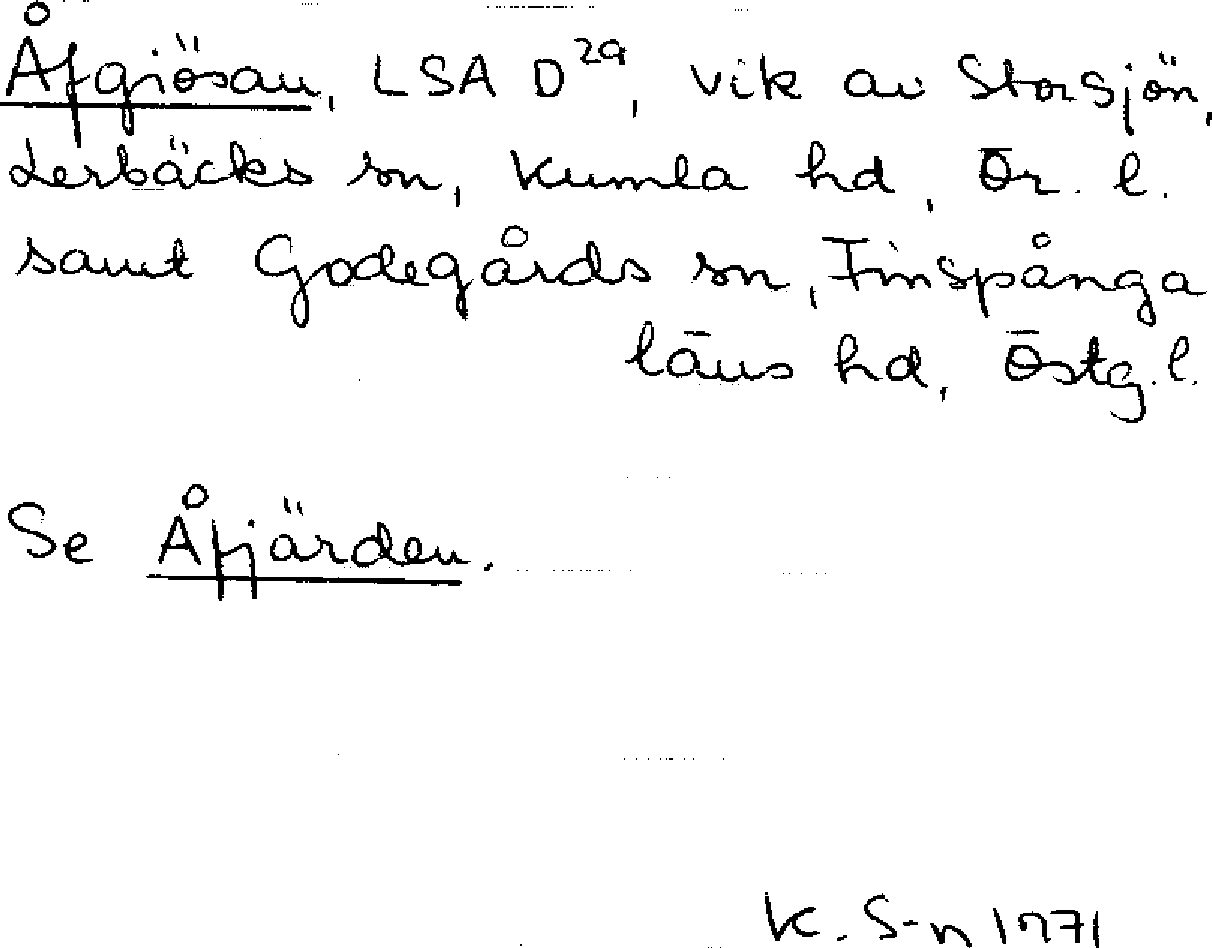 Åfgiösan, LSA D²⁹, vik av Storsjön,
Lerbäcks sn, Kumla hd, Ör. l.
samt Godegårds sn, Finspånga
läns hd, Östg. l.
Se Åfjärden.
K. S-n 1971